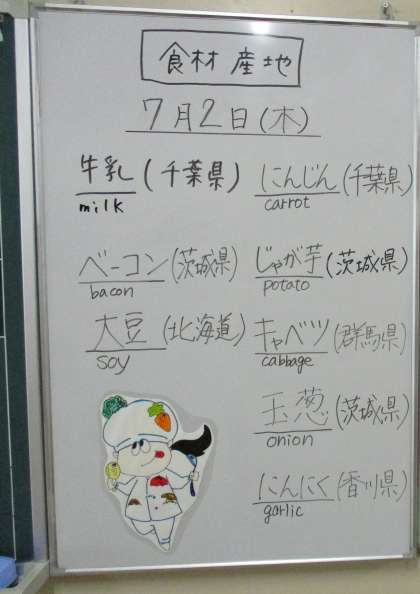 食材産地
7月2日(木)
牛乳(千葉県)
milk
にんじん(千葉県)
carrot
ベーコン(茨城県)
bacon
じゃが芋(茨城県)
potato
大豆(北海道)
soy
キャベツ(群馬県)
cabbage
玉葱(茨城県)
onion
にんにく(香川県)
garlic